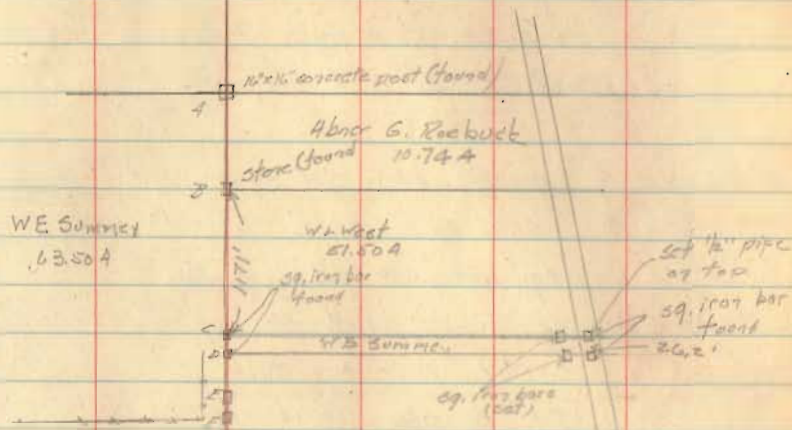 16"x16" concrete post (found)
A
Abner G. Roebuck
10.74 A
Stone (found
B
W E Summey
63.50 A
W L West
51.50 A
1171'
sq. iron bar
found
set 1/2" pipe
on top
sq. iron bar
found
C
W E Summey
D
26.2'
E
sq. iron bars
(set)
F